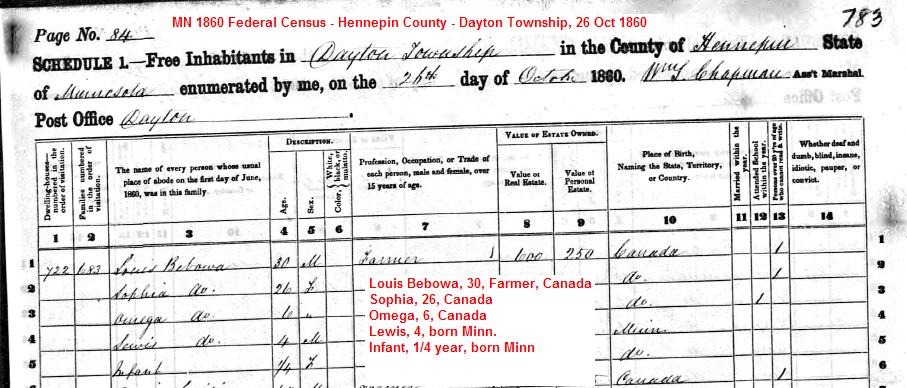 MN 1860 Federal Census - Hennepin County - Dayton Township, 26 Oct 1860
783
Page No. 84
SCHEDULE 1.—Free Inhabitants in Dayton Township in the County of Hennepin State
of Minnesota enumerated by me, on the 26th day of Octobr 1860. Wm S Chapman Ass't Marshal.
Post Office Dayton
Dwelling-houses—numbered in the order of visitation.
Families numbered in the order of visitation.
The name of every person whose usual place of abode on the first day of June, 1860, was in this family.
DESCRIPTION.
Age.
Sex.
Color, White, black, or mulatto.
Profession, Occupation, or Trade of each person, male and female, over 15 years of age.
VALUE OF ESTATE OWNED.
Value of Real Estate.
Value of Personal Estate.
Place of Birth, Naming the State, Territory, or Country.
Married within the year.
Attended School within the year.
Persons over 20 y'rs of age who cannot read & write.
Whether deaf and dumb, blind, insane, idiotic, pauper, or convict.
1 2 3 4 5 6 7 8 9 10 11 12 13 14
1 722 683 Louis Bebowa 30 M Farmer 1 600 250 Canada 1 1
2 Sophia do. 26 F do. 1 2
3 Omega do. 6 " do. 1 3
4 Lewis do. 4 M Minn 4
5 Infant 1/4 F do. 5
Canada 1
Louis Bebowa, 30, Farmer, Canada
Sophia, 26, Canada
Omega, 6, Canada
Lewis, 4, born Minn.
Infant, 1/4 year, born Minn